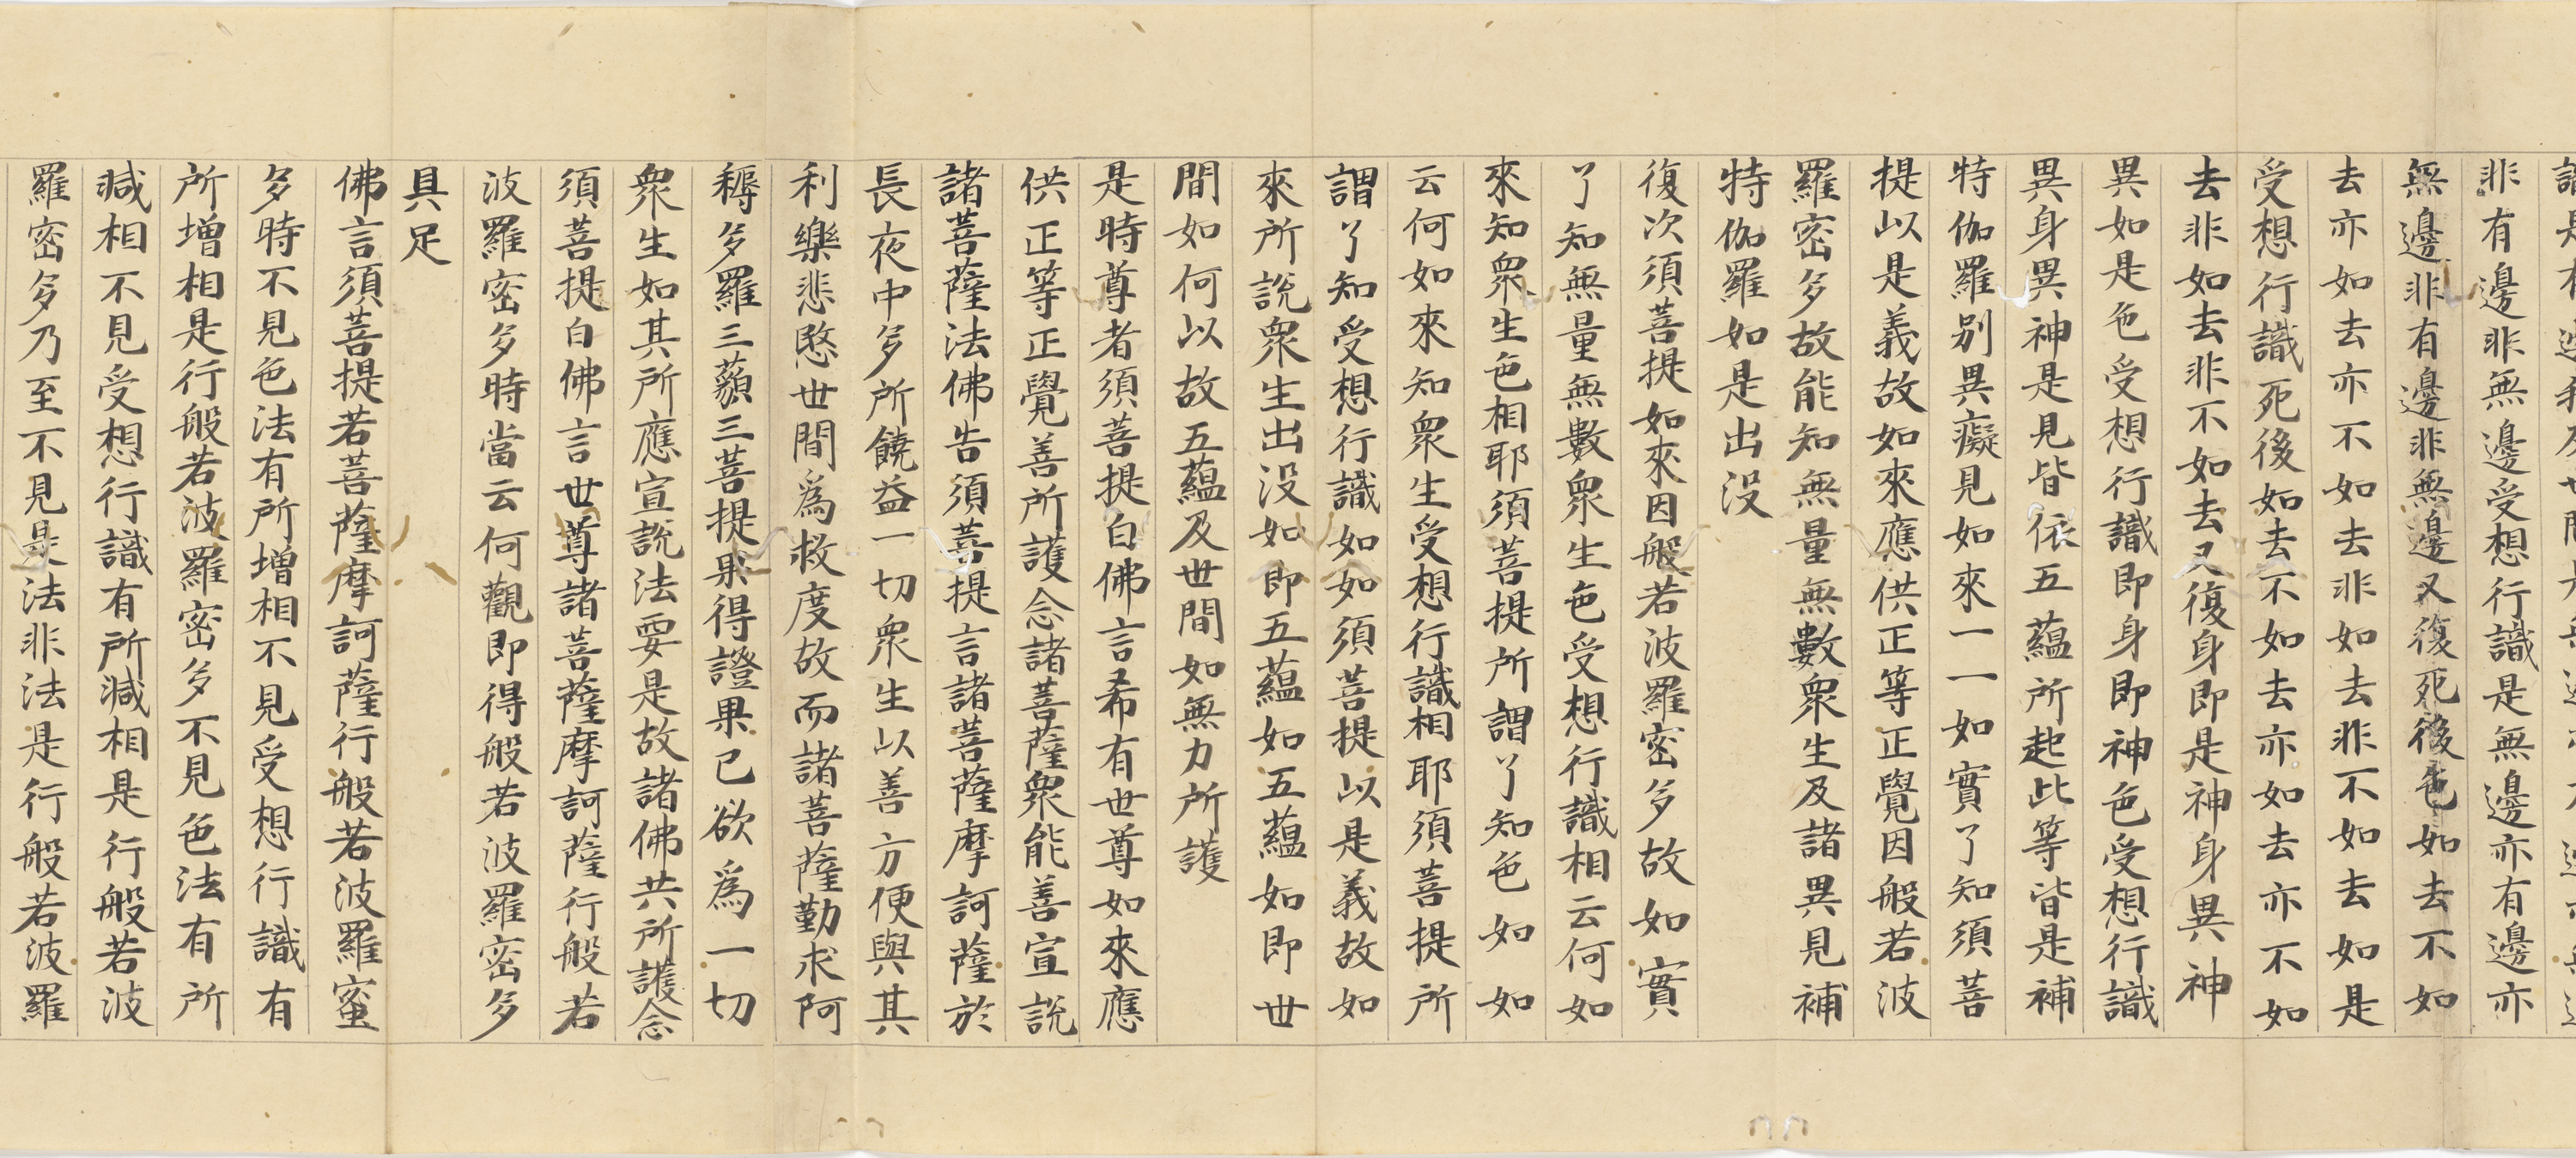 非有邊非無邊受想行識是無邊亦有邊亦
無邊非有邊非無邊又復死後色如去不如
去亦如去亦不如去非如去非不如去如是
受想行識死後如去不如去亦如去亦不如
去非如去非不如去又復身即是神身異神
異如是色受想行識即身即神色受想行識
異身異神是見皆依五蘊所起此等皆是補
特伽羅別異癡見如來一一如實了知須菩
提以是義故如來應供正等正覺因般若波
羅密多故能知無量無數眾生及諸異見補
特伽羅如是出没
復次須菩提如來因般若波羅密多故如實
了知無量無數眾生色受想行識相云何如
來知眾生色相耶須菩提所謂了知色如如
云何如來知眾生受想行識相耶須菩提所
謂了知受想行識如如須菩提以是義故如
來所說眾生出没如即五蘊如五蘊如即世
間如何以故五蘊及世間如無力所護
是時尊者須菩提白佛言希有世尊如來應
供正等正覺善所護念諸菩薩眾能善宣說
諸菩薩法佛告須菩提言諸菩薩摩訶薩於
長夜中多所饒益一切眾生以善方便與其
利樂悲愍世間為救度故而諸菩薩勤求阿
耨多羅三藐三菩提果得證果已欲為一切
眾生如其所應宣說法要是故諸佛共所護念
須菩提白佛言世尊諸菩薩摩訶薩行般若
波羅密多時當云何觀即得般若波羅密多
具足
佛言須菩提若菩薩摩訶薩行般若波羅蜜
多時不見色法有所增相不見受想行識有
所增相是行般若波羅密多不見色法有所
減相不見受想行識有所減相是行般若波
羅密多乃至不見是法非法是行般若波羅